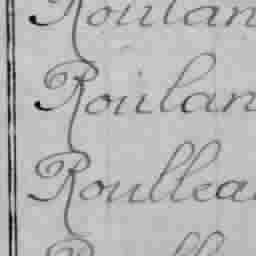 Roulan
Roulan
Roullea